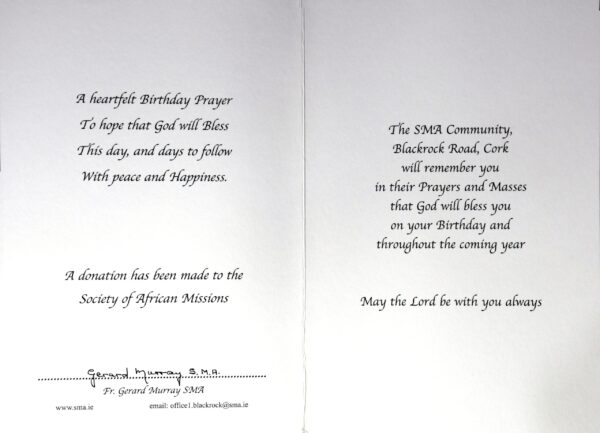 A heartfelt Birthday Prayer
To hope that God will Bless
This day, and days to follow
With peace and Happiness.
A donation has been made to the
Society of African Missions
Gerard Murray S.M.A.
Fr. Gerard Murray SMA
www.sma.ie email: office1.blackrock@sma.ie
The SMA Community,
Blackrock Road, Cork
will remember you
in their Prayers and Masses
that God will bless you
on your Birthday and
throughout the coming year
May the Lord be with you always